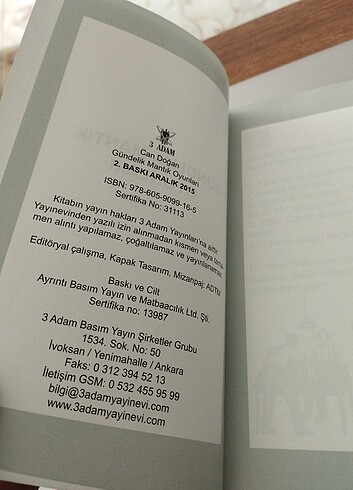 3 ADAM
Can Doğan
Gündelik Mantık Oyunları
2. BASKI ARALIK 2015
ISBN: 978-605-9099-16-5
Sertifika No: 31113
Kitabın yayın hakları 3 Adam Yayınları'na aittir.
Yayınevinden yazılı izin alınmadan kısmen veya tama
men alıntı yapılamaz, çoğaltılamaz ve yayınlanamaz.
Editöryal çalışma, Kapak Tasarım, Mizanpaj: ADTM
Baskı ve Cilt
Ayrıntı Basım Yayın ve Matbaacılık Ltd. Şti.
Sertifika no: 13987
3 Adam Basım Yayın Şirketler Grubu
1534. Sok. No: 50
İvoksan / Yenimahalle / Ankara
Faks: 0 312 394 52 13
İletişim GSM: 0 532 455 95 99
bilgi@3adamyayinevi.com
www.3adamyayinevi.com